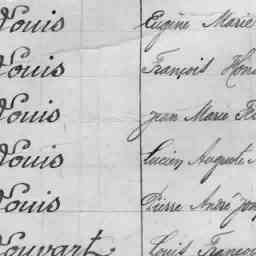 Louis Eugène Marie
Louis François Hono
Louis Jean Marie
Louis Lucien Auguste
Louis Pierre André Jose
Louvart Louis Franço